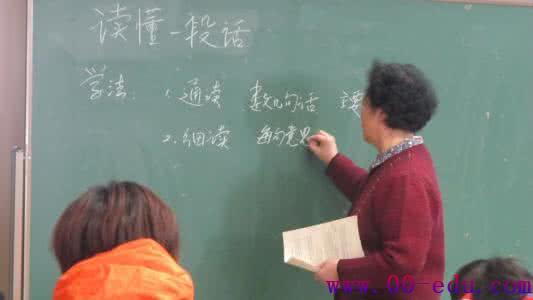 读懂一段话
学法: 1.通读 数几句话 主要
2.细读 每句意思
www.00-edu.com